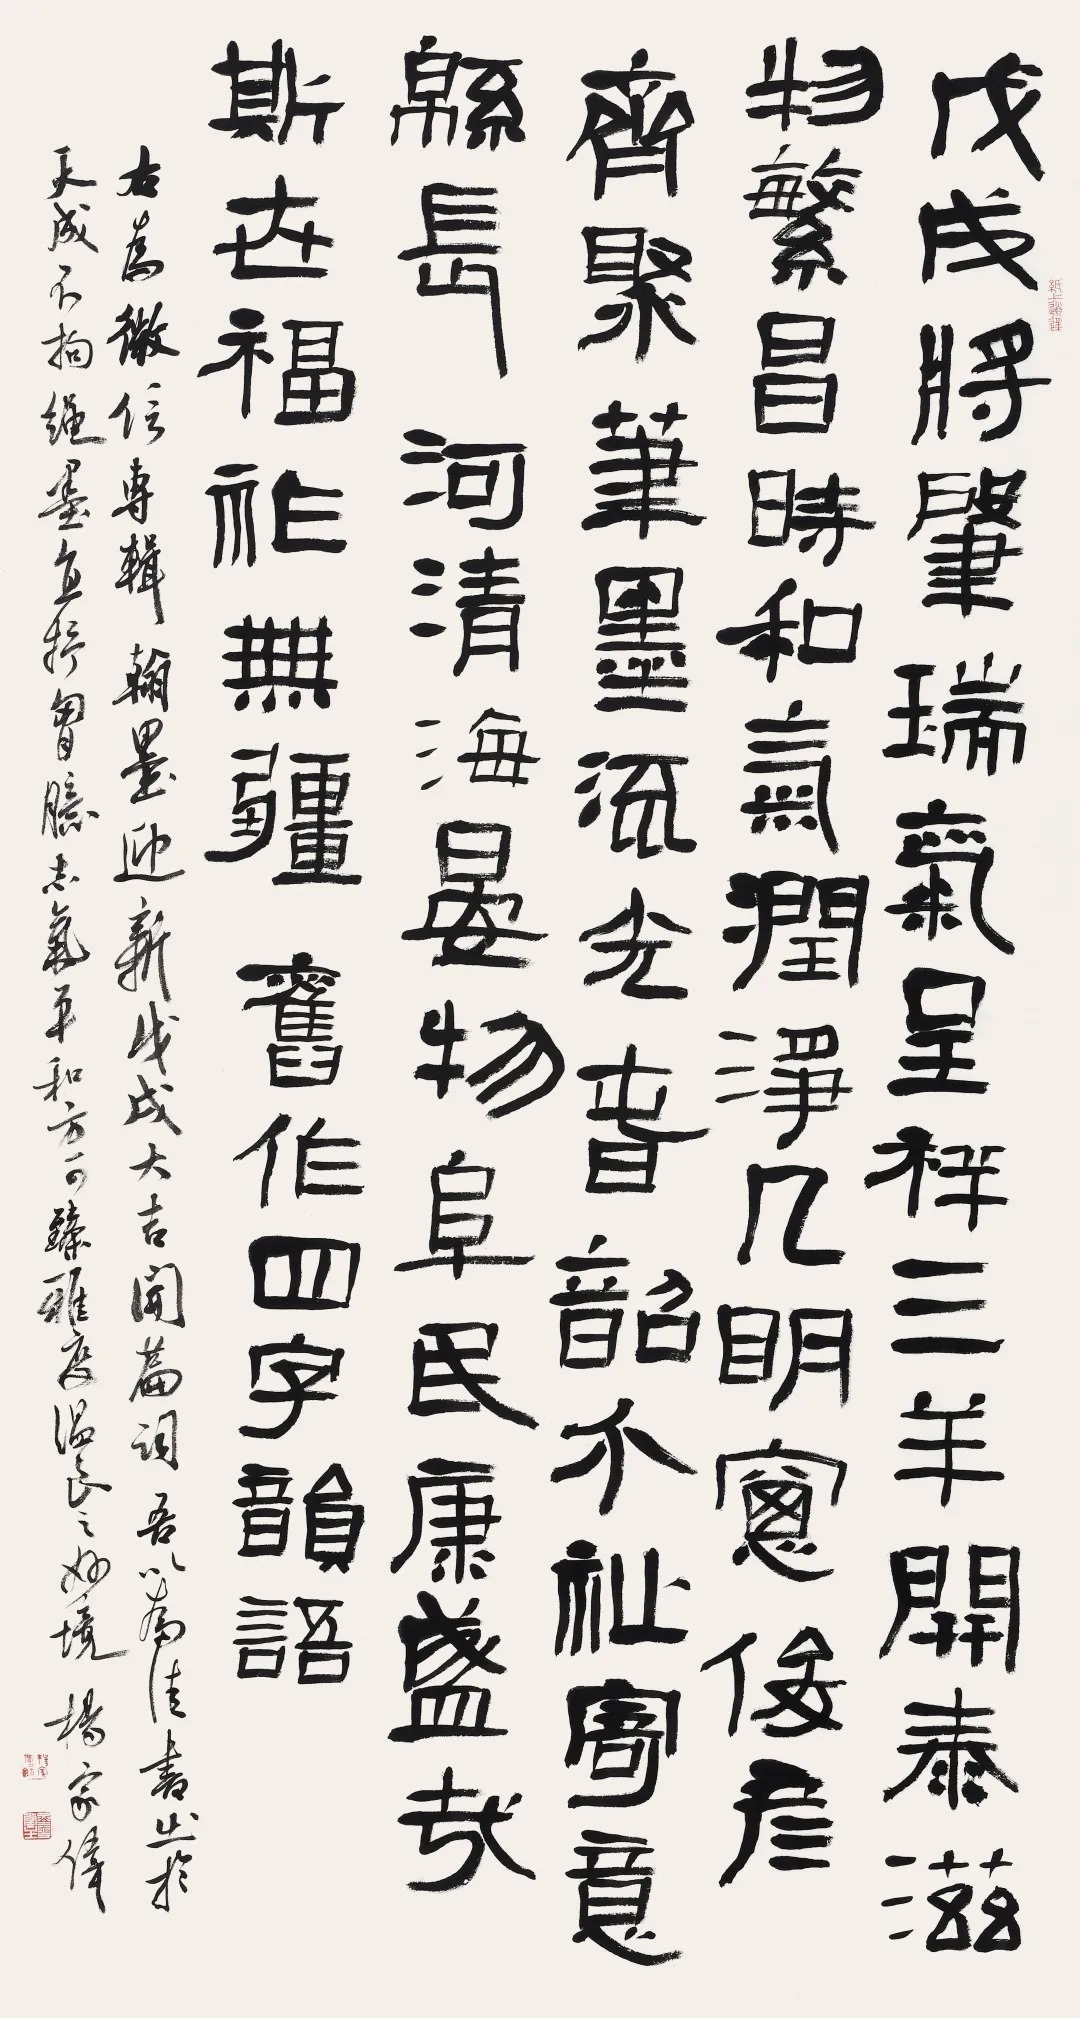 戊戌將肇瑞氣呈祥三羊開泰滋
物繁昌時和氣潤淨几明窻俊彦
齊聚筆墨流光耆韶介祉寄意
緜長河清海晏物阜民康盛哉
斯世福祚無疆舊作四字韻語
右為微信專輯翰墨迎新戊戌大吉開篇詞吾以為佳書出於
天成不拘繩墨直抒胷臆志氣平和方可臻雅度温良之妙境楊家偉